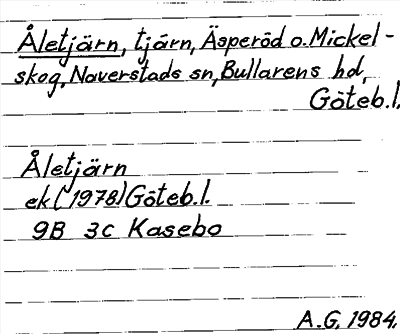 Åletjärn, tjärn, Äsperöd o. Mickel-
skog, Naverstads sn, Bullarens hd,
Göteb.l.
Åletjärn
ek (1978) Göteb.l.
9B 3c Kasebo
A.G. 1984.